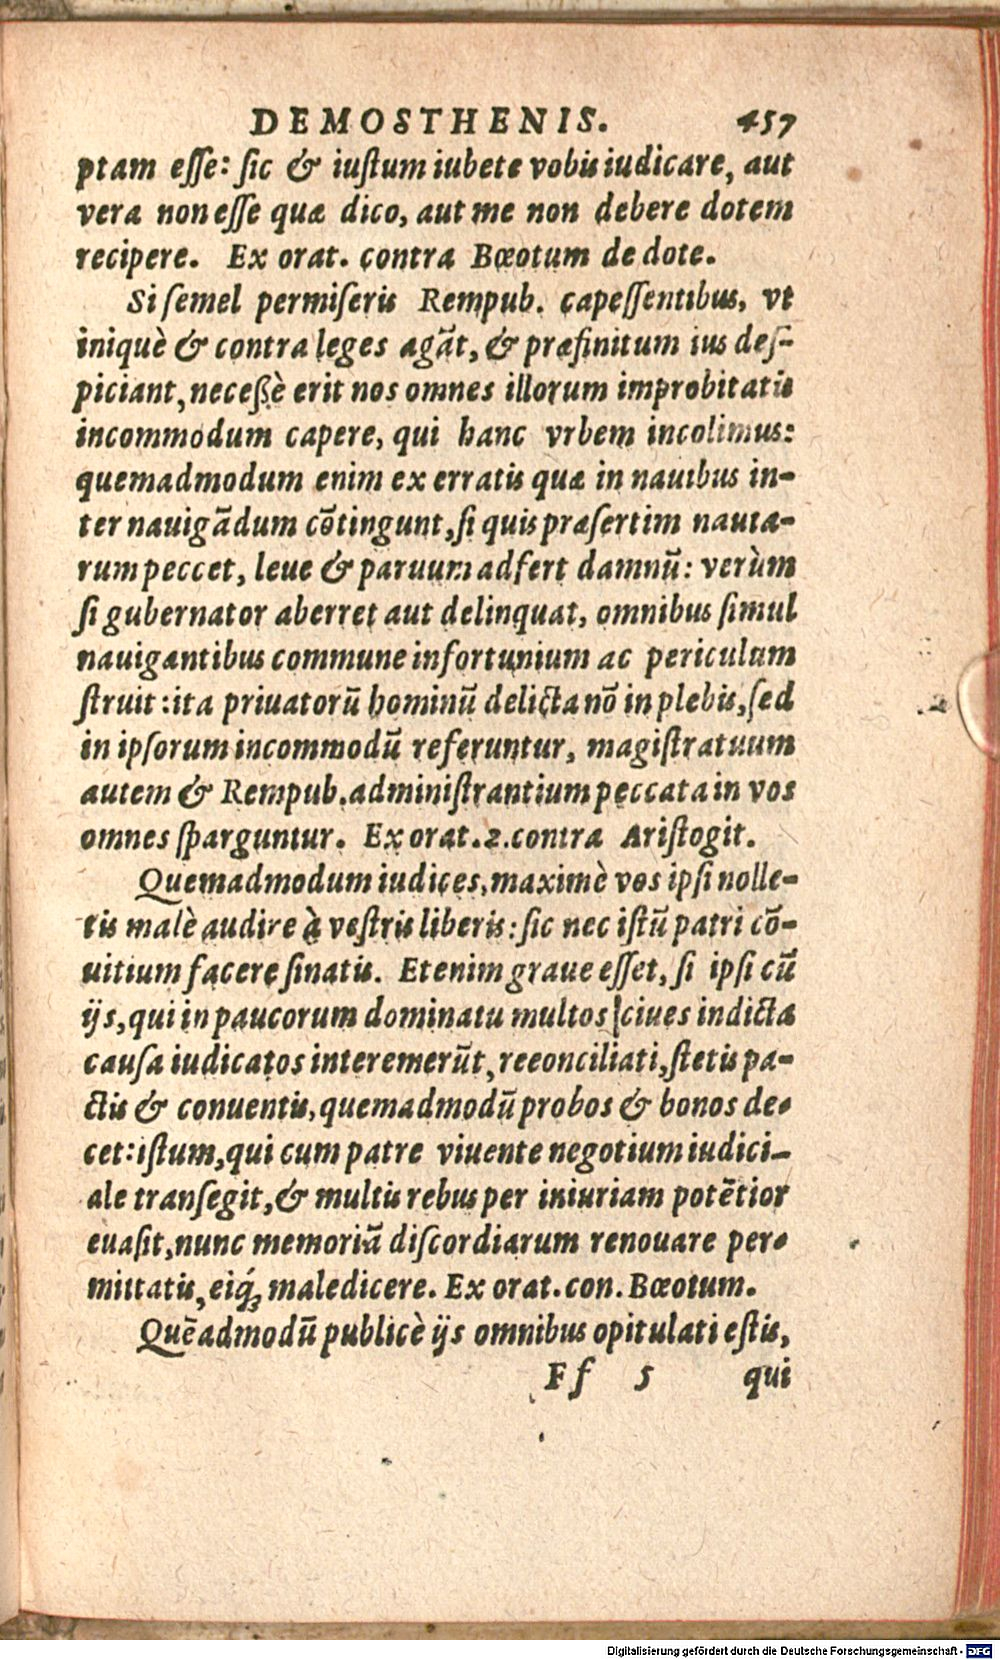 DEMOSTHENIS. 457
ptam esse: sic & iustum iubete vobis iudicare, aut
vera non esse quæ dico, aut me non debere dotem
recipere. Ex orat. contra Bœotum de dote.
Si semel permiseris Rempub. capessentibus, vt
iniquè & contra leges agãt, & præfinitum ius des-
piciant, necessè erit nos omnes illorum improbitatis
incommodum capere, qui hanc vrbem incolimus:
quemadmodum enim ex erratis quæ in nauibus in-
ter nauigãdum cõtingunt, si quis præsertim nauta-
rum peccet, leue & paruum adfert damnũ: verùm
si gubernator aberret aut delinquat, omnibus simul
nauigantibus commune infortunium ac periculum
struit: ita priuatorũ hominũ delicta nõ in plebis, sed
in ipsorum incommodũ referuntur, magistratuum
autem & Rempub. administrantium peccata in vos
omnes sparguntur. Ex orat. 2. contra Aristogit.
Quemadmodum iudices, maximè vos ipsi nolle-
tis malè audire à vestris liberis: sic nec istũ patri cõ-
uitium facere sinatis. Etenim graue esset, si ipsi cũ
ijs, qui in paucorum dominatu multos ciues indicta
causa iudicatos interemerũt, reeonciliati, stetis pa-
ctis & conuentis, quemadmodũ probos & bonos de-
cet: istum, qui cum patre viuente negotium iudici-
ale transegit, & multis rebus per iniuriam potẽtior
euasit, nunc memoriã discordiarum renouare per-
mittatis, eiq́; maledicere. Ex orat. con. Bœotum.
Quẽadmodũ publicè ijs omnibus opitulati estis,
Ff 5 qui
Digitalisierung gefördert durch die Deutsche Forschungsgemeinschaft - DFG